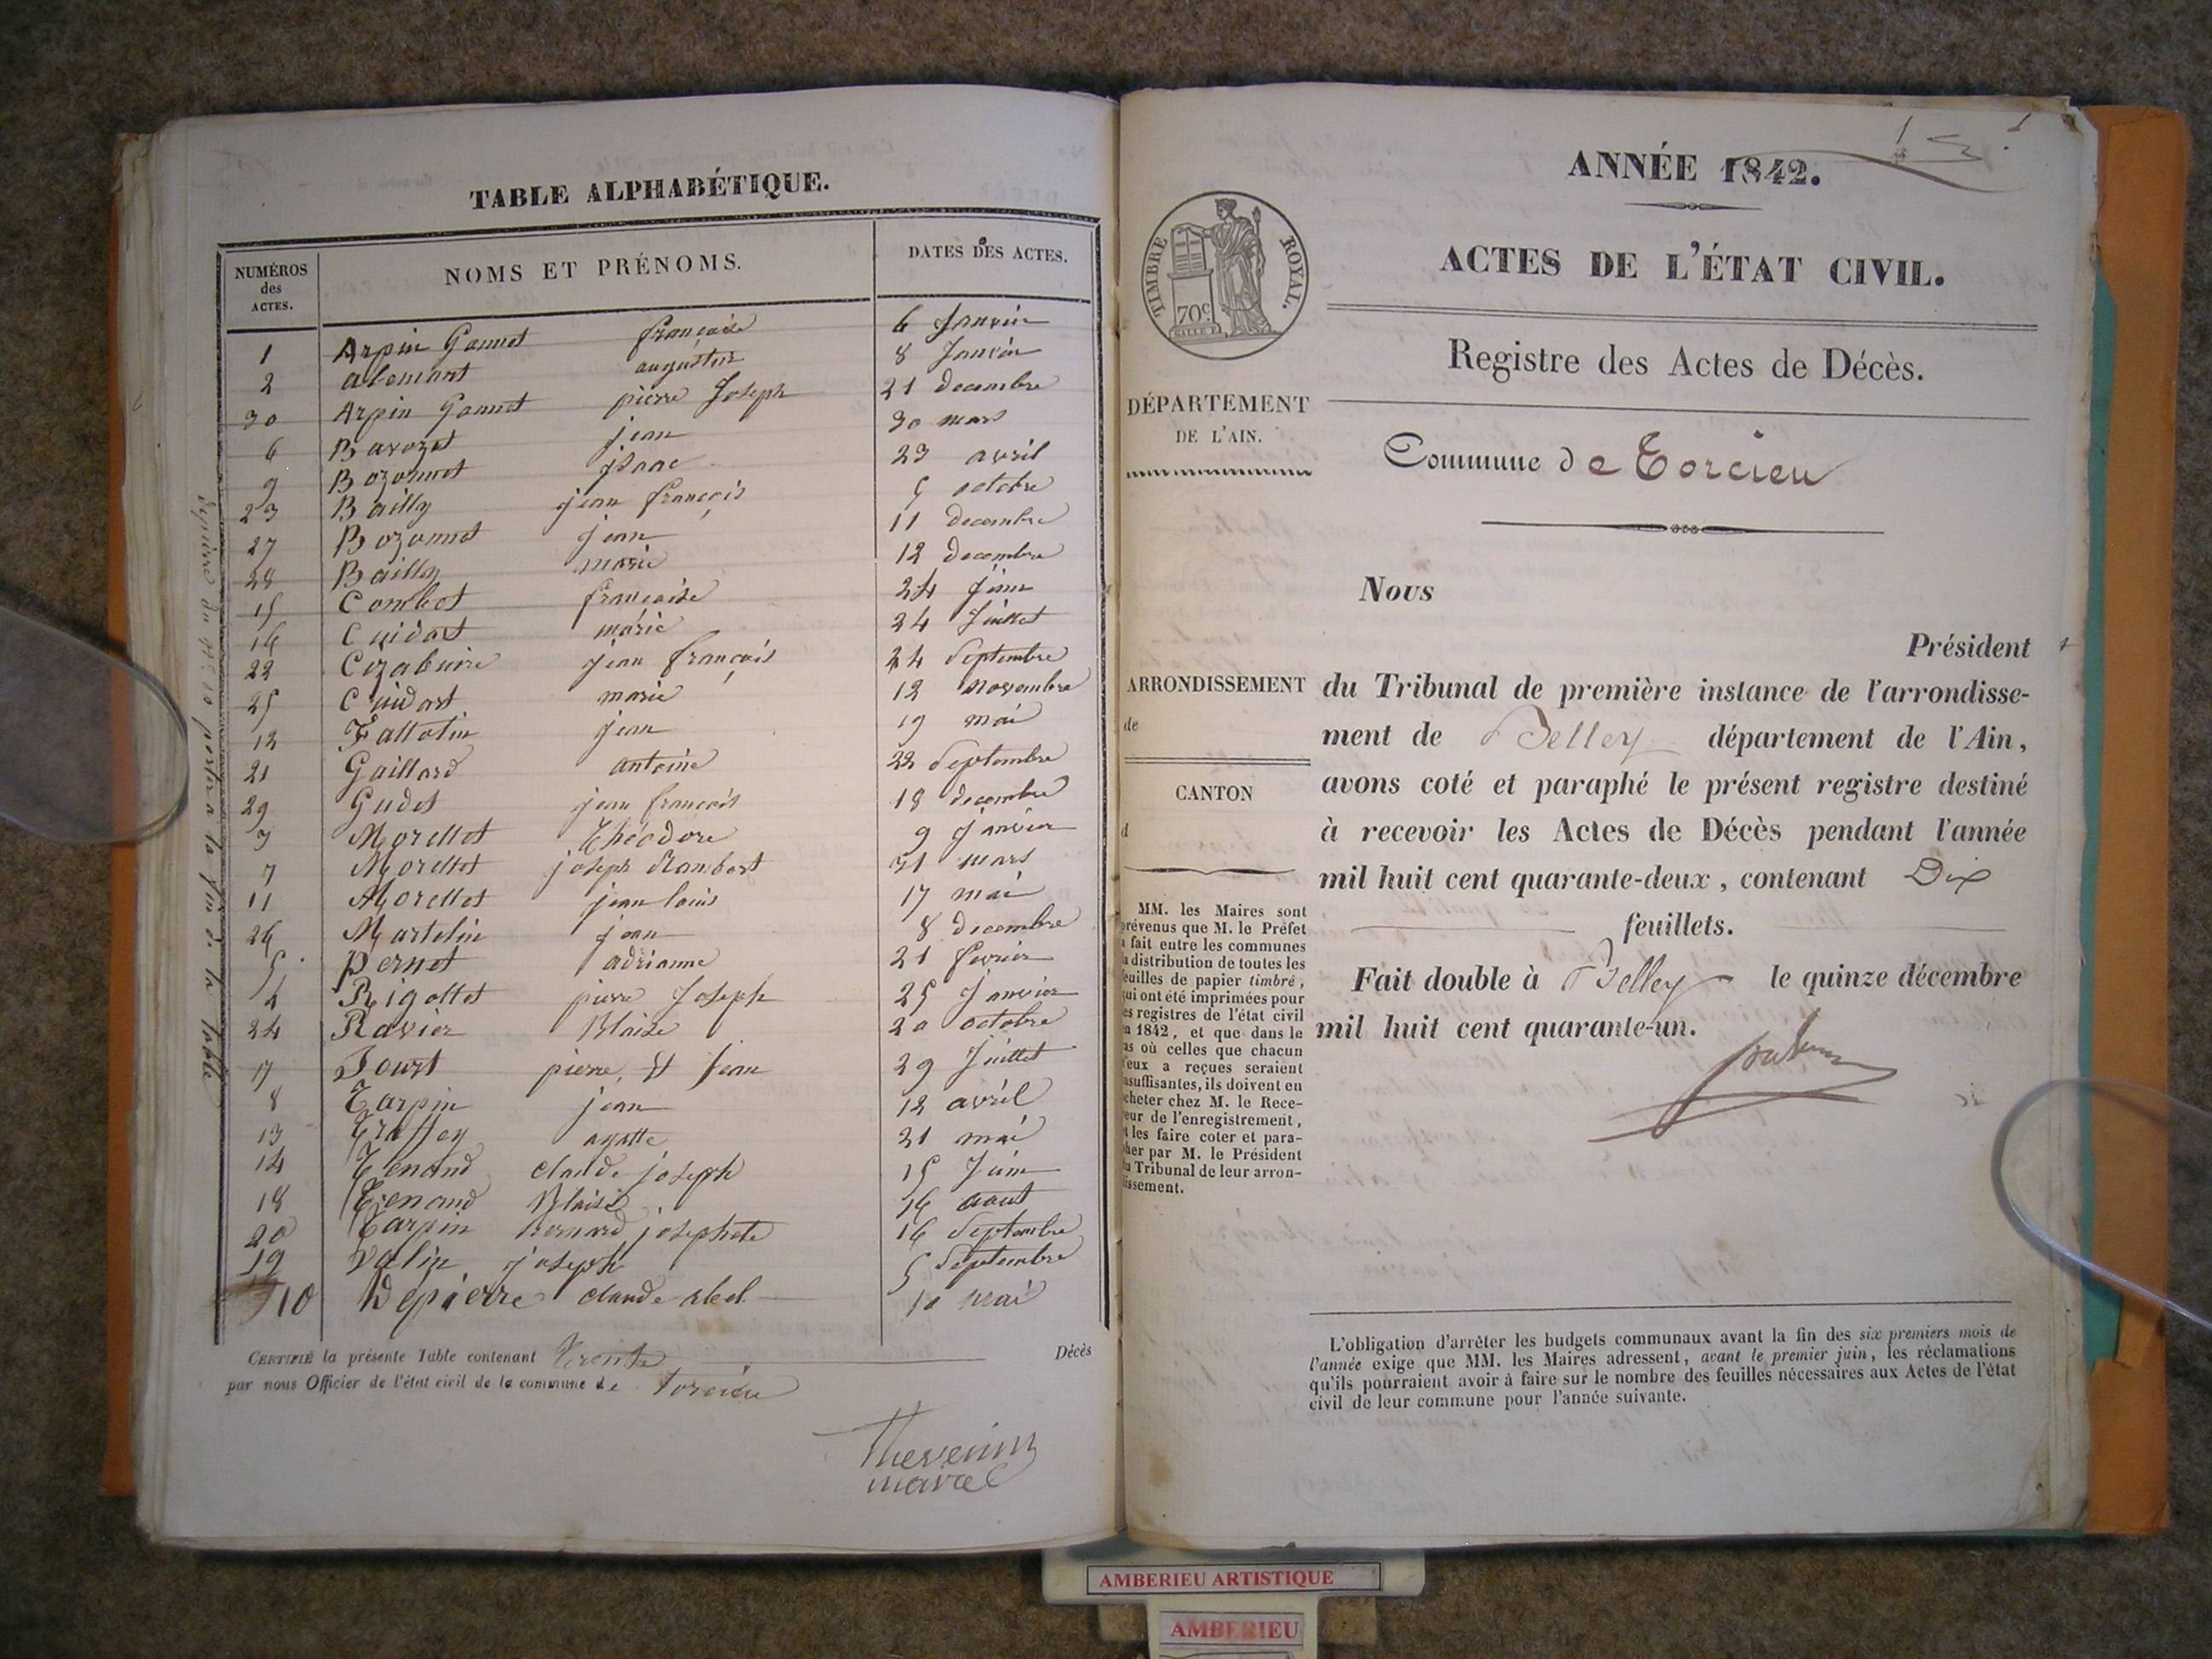 TABLE ALPHABÉTIQUE.
NUMÉROS des ACTES. NOMS ET PRÉNOMS. DATES DES ACTES.
1 Arpin Gonnet françoise 6 Janvier
2 alemant augustin 8 Janvier
30 Arpin Gonnet pierre Joseph 21 decembre
6 Bavozet jean 30 mars
9 Bozonnet 23 avril
23 Bailly jean françois 5 octobre
27 Bozonnet jean 11 decembre
28 Bailly marie 12 decembre
15 Combet françoise 24 Juin
16 Cuidart marie 24 Juillet
22 Cozabuire jean françois 24 Septembre
25 Cuidart marie 12 novembre
12 Fattotin jean 19 mai
21 Gaillard antoine 22 Septembre
29 Gudet jean françois 18 decembre
3 Morettet Théodore 9 Janvier
7 Morettet joseph Rambert 31 mars
11 Morettet jean louis 17 mai
26 Martelin jean 8 decembre
5 Pernet adrianne 21 fevrier
4 Rigottet pierre Joseph 25 Janvier
24 Ravier Blaise 20 octobre
17 pierre, St Jean 29 Juillet
8 Tarpin jean 12 avril
13 Traffey agatte 21 mai
14 Tenand claude joseph 15 Juin
18 Tenand Blaise 16 aout
20 Tarpin Bernard josephete 16 Septembre
19 Valin joseph 5 Septembre
10 Depierre claude abel 10 mai
CERTIFIÉ la présente Table contenant Trente Décès
par nous Officier de l'état civil de la commune de Torcieu
Thevenin
maire
Depierre du n° 10 portera la fin de la table
ANNÉE 1842.
ACTES DE L'ÉTAT CIVIL.
TIMBRE ROYAL.
70c
Registre des Actes de Décès.
DÉPARTEMENT
DE L'AIN.
Commune de Torcieu
Nous
Président
ARRONDISSEMENT
de
CANTON
d
du Tribunal de première instance de l'arrondisse-
ment de Belley département de l'Ain,
avons coté et paraphé le présent registre destiné
à recevoir les Actes de Décès pendant l'année
mil huit cent quarante-deux, contenant Dix
feuillets.
Fait double à Belley le quinze décembre
mil huit cent quarante-un.
MM. les Maires sont
prévenus que M. le Préfet
a fait entre les communes
la distribution de toutes les
feuilles de papier timbré,
qui ont été imprimées pour
les registres de l'état civil
en 1842, et que dans le
cas où celles que chacun
d'eux a reçues seraient
insuffisantes, ils doivent en
acheter chez M. le Rece-
veur de l'enregistrement,
et les faire coter et para-
pher par M. le Président
du Tribunal de leur arron-
dissement.
L'obligation d'arrêter les budgets communaux avant la fin des six premiers mois de
l'année exige que MM. les Maires adressent, avant le premier juin, les réclamations
qu'ils pourraient avoir à faire sur le nombre des feuilles nécessaires aux Actes de l'état
civil de leur commune pour l'année suivante.
AMBERIEU ARTISTIQUE
AMBERIEU